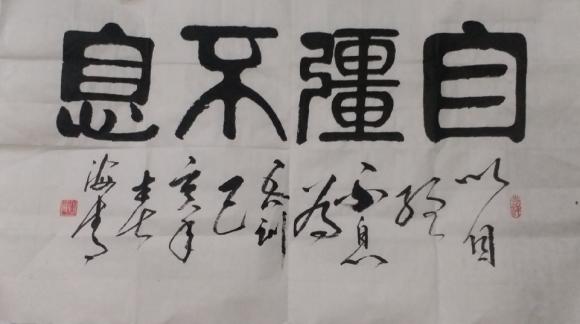 自彊不息
以自
强
不息
为
吾训
己
亥年
春
海青